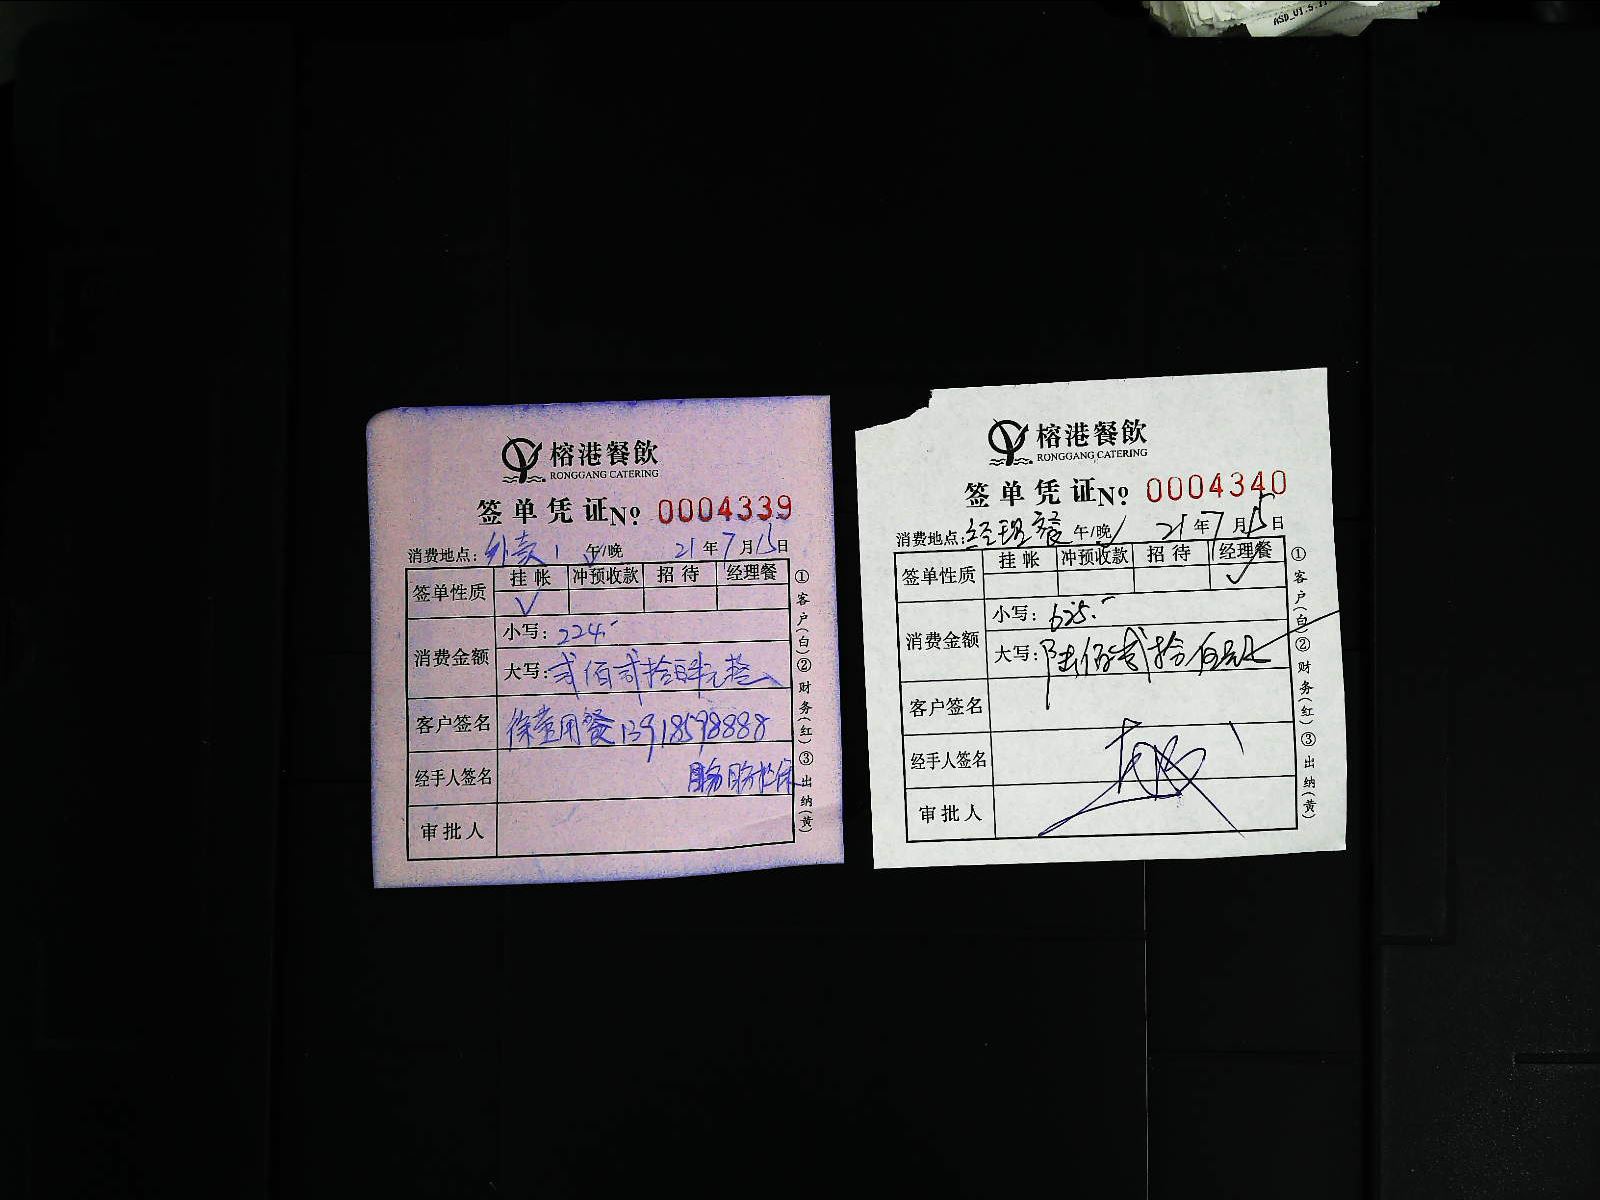 ASD_V1.5.11
榕港餐飲
RONGGANG CATERING
签单凭证 No 0004339
消费地点: 外卖 午/晚 21年7月15日
签单性质 挂帐 冲预收款 招待 经理餐
✓
消费金额
小写: 224.-
大写: 贰佰贰拾肆元整
客户签名 徐堂用餐 13918598888
经手人签名
审批人
①客户(白)②财务(红)③出纳(黄)
榕港餐飲
RONGGANG CATERING
签单凭证 No 0004340
消费地点: 经理餐 午/晚 21年7月15日
签单性质 挂帐 冲预收款 招待 经理餐
✓
消费金额
小写: 625.-
大写: 陆佰贰拾伍元
客户签名
经手人签名
审批人
①客户(白)②财务(红)③出纳(黄)